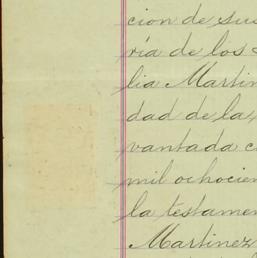 cion de sus
ría de los
lia Martin
dad de la
vantada c
mil ochocien
la testamen
Martinez